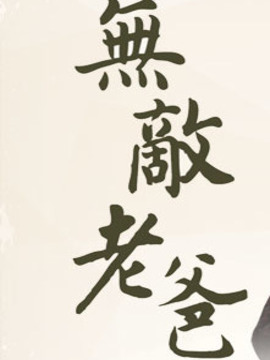 無敵老爸